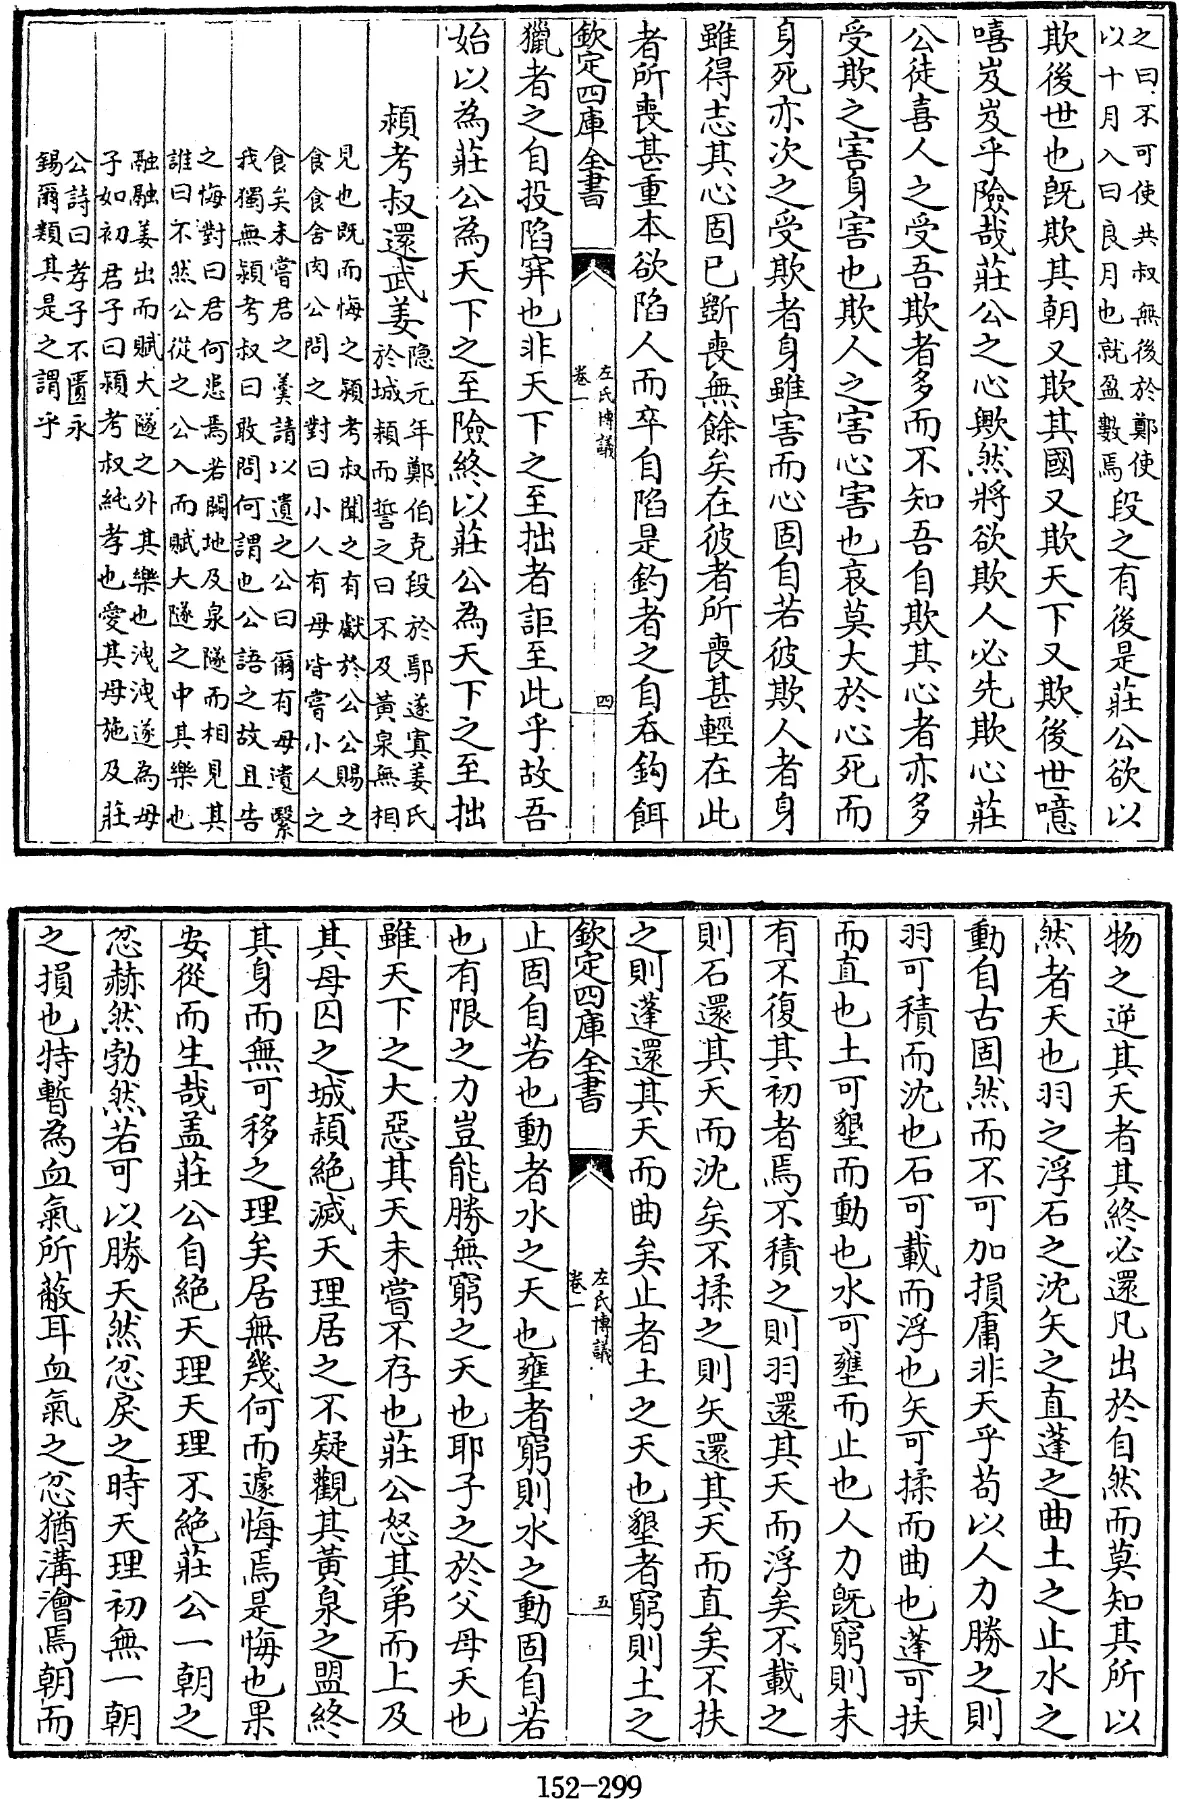 之曰不可使共叔無後於鄭使
以十月入曰良月也就盈數焉
段之有後是莊公欲以
欺後世也既欺其朝又欺其國又欺天下又欺後世噫
嘻岌岌乎險哉莊公之心歟然將欲欺人必先欺心莊
公徒喜人之受吾欺者多而不知吾自欺其心者亦多
受欺之害身害也欺人之害心害也哀莫大於心死而
身死亦次之受欺者身雖害而心固自若彼欺人者身
雖得志其心固已斵喪無餘矣在彼者所喪甚輕在此
者所喪甚重本欲陷人而卒自陷是釣者之自吞鈎餌
欽定四庫全書
左氏博議
卷一
四
獵者之自投陷穽也非天下之至拙者詎至此乎故吾
始以為莊公為天下之至險終以莊公為天下之至拙
潁考叔還武姜
隱元年鄭伯克段於鄢遂寘姜氏
於城潁而誓之曰不及黃泉無相
見也既而悔之潁考叔聞之有獻於公公賜之
食食舍肉公問之對曰小人有母皆嘗小人之
食矣未嘗君之羮請以遺之公曰爾有母遺繄
我獨無潁考叔曰敢問何謂也公語之故且告
之悔對曰君何患焉若闕地及泉隧而相見其
誰曰不然公從之公入而賦大隧之中其樂也
融融姜出而賦大隧之外其樂也洩洩遂為母
子如初君子曰潁考叔純孝也愛其母施及莊
公詩曰孝子不匱永
錫爾類其是之謂乎
物之逆其天者其終必還凡出於自然而莫知其所以
然者天也羽之浮石之沈矢之直蓬之曲土之止水之
動自古固然而不可加損庸非天乎苟以人力勝之則
羽可積而沈也石可載而浮也矢可揉而曲也蓬可扶
而直也土可墾而動也水可壅而止也人力既窮則未
有不復其初者焉不積之則羽還其天而浮矣不載之
則石還其天而沈矣不揉之則矢還其天而直矣不扶
之則蓬還其天而曲矣止者土之天也墾者窮則土之
欽定四庫全書
左氏博議
卷一
五
止固自若也動者水之天也壅者窮則水之動固自若
也有限之力豈能勝無窮之天也耶子之於父母天也
雖天下之大惡其天未嘗不存也莊公怒其弟而上及
其母囚之城潁絕滅天理居之不疑觀其黃泉之盟終
其身而無可移之理矣居無幾何而遽悔焉是悔也果
安從而生哉蓋莊公自絕天理天理不絕莊公一朝之
忿赫然勃然若可以勝天然忿戾之時天理初無一朝
之損也特暫為血氣所蔽耳血氣之忿猶溝澮焉朝而
152-299